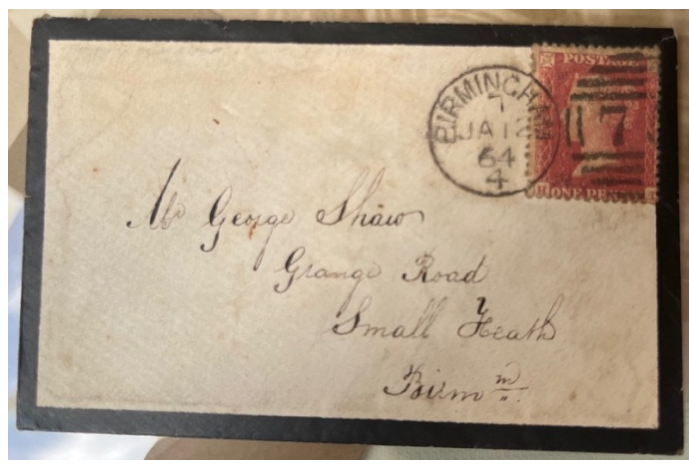 BIRMINGHAM
7
JA 12
64
4
POSTAGE
ONE PENNY
Mr George Shaw
Grange Road
Small Heath
Birmm